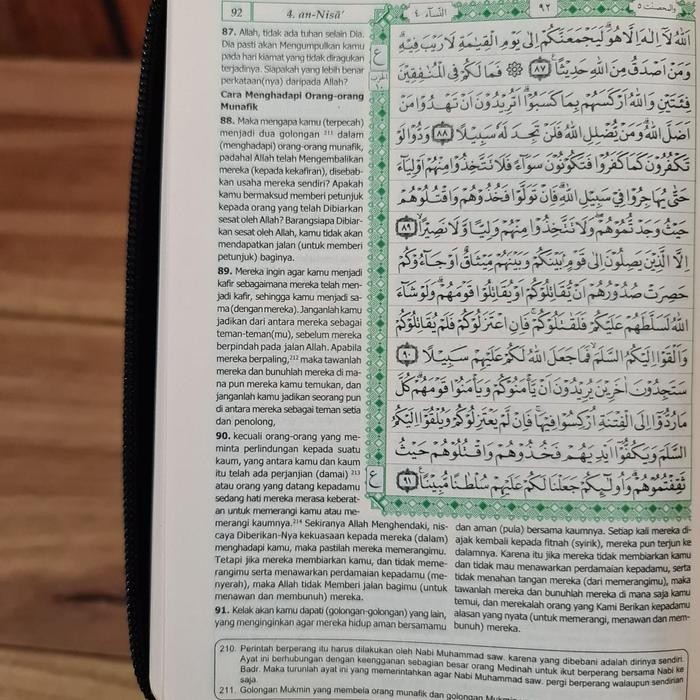 92
4. an-Nisā'
النسآء ٤
٩٢
والمحصنت ٥
87. Allah, tidak ada tuhan selain Dia.
Dia pasti akan Mengumpulkan kamu
pada hari kiamat yang tidak diragukan
terjadinya. Siapakah yang lebih benar
perkataan(nya) daripada Allah?
Cara Menghadapi Orang-orang
Munafik
88. Maka mengapa kamu (terpecah)
menjadi dua golongan ²¹¹ dalam
(menghadapi) orang-orang munafik,
padahal Allah telah Mengembalikan
mereka (kepada kekafiran), disebab-
kan usaha mereka sendiri? Apakah
kamu bermaksud memberi petunjuk
kepada orang yang telah Dibiarkan
sesat oleh Allah? Barangsiapa Dibiar-
kan sesat oleh Allah, kamu tidak akan
mendapatkan jalan (untuk memberi
petunjuk) baginya.
89. Mereka ingin agar kamu menjadi
kafir sebagaimana mereka telah men-
jadi kafir, sehingga kamu menjadi sa-
ma (dengan mereka). Janganlah kamu
jadikan dari antara mereka sebagai
teman-teman(mu), sebelum mereka
berpindah pada jalan Allah. Apabila
mereka berpaling,²¹² maka tawanlah
mereka dan bunuhlah mereka di ma-
na pun mereka kamu temukan, dan
janganlah kamu jadikan seorang pun
di antara mereka sebagai teman setia
dan penolong,
90. kecuali orang-orang yang me-
minta perlindungan kepada suatu
kaum, yang antara kamu dan kaum
itu telah ada perjanjian (damai) ²¹³
atau orang yang datang kepadamu
sedang hati mereka merasa keberat-
an untuk memerangi kamu atau me-
merangi kaumnya.²¹⁴ Sekiranya Allah Menghendaki, nis-
caya Diberikan-Nya kekuasaan kepada mereka (dalam)
menghadapi kamu, maka pastilah mereka memerangimu.
Tetapi jika mereka membiarkan kamu, dan tidak meme-
rangimu serta menawarkan perdamaian kepadamu (me-
nyerah), maka Allah tidak Memberi jalan bagimu (untuk
menawan dan membunuh) mereka.
91. Kelak akan kamu dapati (golongan-golongan) yang lain,
yang menginginkan agar mereka hidup aman bersamamu
dan aman (pula) bersama kaumnya. Setiap kali mereka di-
ajak kembali kepada fitnah (syirik), mereka pun terjun ke
dalamnya. Karena itu jika mereka tidak membiarkan kamu
dan tidak mau menawarkan perdamaian kepadamu, serta
tidak menahan tangan mereka (dari memerangimu), maka
tawanlah mereka dan bunuhlah mereka di mana saja kamu
temui, dan merekalah orang yang Kami Berikan kepadamu
alasan yang nyata (untuk memerangi, menawan dan mem-
bunuh) mereka.
ٱللَّهُ لَآ إِلَٰهَ إِلَّا هُوَ لَيَجْمَعَنَّكُمْ إِلَىٰ يَوْمِ ٱلْقِيَٰمَةِ لَا رَيْبَ فِيهِ
وَمَنْ أَصْدَقُ مِنَ ٱللَّهِ حَدِيثًا ٨٧ ۞ فَمَا لَكُمْ فِى ٱلْمُنَٰفِقِينَ
فِئَتَيْنِ وَٱللَّهُ أَرْكَسَهُم بِمَا كَسَبُوٓا۟ أَتُرِيدُونَ أَن تَهْدُوا۟ مَنْ
أَضَلَّ ٱللَّهُ وَمَن يُضْلِلِ ٱللَّهُ فَلَن تَجِدَ لَهُۥ سَبِيلًا ٨٨ وَدُّوا۟ لَوْ
تَكْفُرُونَ كَمَا كَفَرُوا۟ فَتَكُونُونَ سَوَآءً فَلَا تَتَّخِذُوا۟ مِنْهُمْ أَوْلِيَآءَ
حَتَّىٰ يُهَاجِرُوا۟ فِى سَبِيلِ ٱللَّهِ فَإِن تَوَلَّوْا۟ فَخُذُوهُمْ وَٱقْتُلُوهُمْ
حَيْثُ وَجَدتُّمُوهُمْ وَلَا تَتَّخِذُوا۟ مِنْهُمْ وَلِيًّا وَلَا نَصِيرًا ٨٩
إِلَّا ٱلَّذِينَ يَصِلُونَ إِلَىٰ قَوْمٍۭ بَيْنَكُمْ وَبَيْنَهُم مِّيثَٰقٌ أَوْ جَآءُوكُمْ
حَصِرَتْ صُدُورُهُمْ أَن يُقَٰتِلُوكُمْ أَوْ يُقَٰتِلُوا۟ قَوْمَهُمْ وَلَوْ شَآءَ
ٱللَّهُ لَسَلَّطَهُمْ عَلَيْكُمْ فَلَقَٰتَلُوكُمْ فَإِنِ ٱعْتَزَلُوكُمْ فَلَمْ يُقَٰتِلُوكُمْ
وَأَلْقَوْا۟ إِلَيْكُمُ ٱلسَّلَمَ فَمَا جَعَلَ ٱللَّهُ لَكُمْ عَلَيْهِمْ سَبِيلًا ٩٠
سَتَجِدُونَ ءَاخَرِينَ يُرِيدُونَ أَن يَأْمَنُوكُمْ وَيَأْمَنُوا۟ قَوْمَهُمْ كُلَّ
مَا رُدُّوٓا۟ إِلَى ٱلْفِتْنَةِ أُرْكِسُوا۟ فِيهَا فَإِن لَّمْ يَعْتَزِلُوكُمْ وَيُلْقُوٓا۟ إِلَيْكُمُ
ٱلسَّلَمَ وَيَكُفُّوٓا۟ أَيْدِيَهُمْ فَخُذُوهُمْ وَٱقْتُلُوهُمْ حَيْثُ
ثَقِفْتُمُوهُمْ وَأُو۟لَٰٓئِكُمْ جَعَلْنَا لَكُمْ عَلَيْهِمْ سُلْطَٰنًا مُّبِينًا ٩١
ع
الحزب
١٠
ع
210. Perintah berperang itu harus dilakukan oleh Nabi Muhammad saw. karena yang dibebani adalah dirinya sendiri.
Ayat ini berhubungan dengan keengganan sebagian besar orang Medinah untuk ikut berperang bersama Nabi ke
Badr. Maka turunlah ayat ini yang memerintahkan agar Nabi Muhammad saw. pergi berperang walaupun sendirian
saja.
211. Golongan Mukmin yang membela orang munafik dan golongan